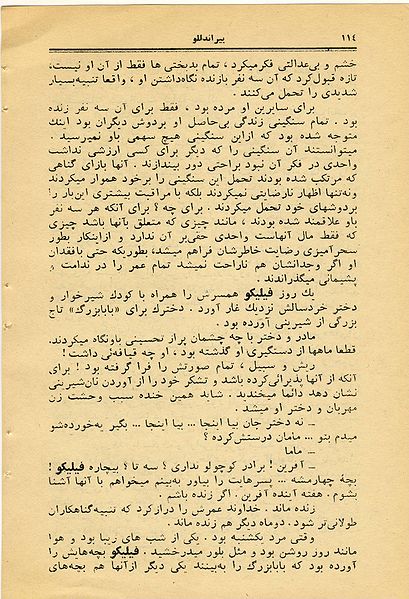 ۱۱٤ پیراندللو
خشم و بی‌عدالتی فکرمیکرد ، تمام بدبختی ها فقط از آن او نیست،
تازه قبول‌کرد که آن سه نفر بازنده نگاه‌داشتن او ، واقعا تنبیه‌بسیار
شدیدی را تحمل می‌کنند .
برای سایرین او مرده بود ، فقط برای آن سه نفر زنده
بود . تمام سنگینی زندگی بی‌حاصل او بردوش دیگران بود اینك
متوجه شده بود که ازاین سنگینی هیچ سهمی باو نمیرسید .
میتوانستند آن سنگینی را که دیگر برای کسی ارزشی نداشت
واحدی در فکر آن نبود براحتی دور بیندازند . آنها بازای گناهی
که مرتکب شده بودند تحمل این سنگینی را برخود هموار میکردند
ونه‌تنها اظهار نارضایتی نمیکردند بلکه با مراقبت بیشتری این‌بار را
بردوشهای خود تحمل میکردند . برای چه ؟ برای آنکه هر سه نفر
باو علاقمند شده بودند ، مانند چیزی که متعلق بآنها باشد چیزی
که فقط مال آنهاست واحدی حقی‌بر آن ندارد و ازاینکار بطور
سحرآمیزی رضایت خاطرشان فراهم میشد، بطوریکه حتی بافقدان
او اگر وجدانشان هم ناراحت نمیشد تمام عمر را در ندامت و
پشیمانی میگذراندند .
یك روز فیلیکو همسرش را همراه با کودك شیرخوار و
دختر خردسالش نزدیك غار آورد . دخترك برای «بابابزرگ» تاج
بزرگی از شیرینی آورده بود .
مادر و دختر با چه چشمان پراز تحسینی باونگاه میکردند.
قطعا ماهها از دستگیری او گذشته بود ، او چه قیافه‌ئی داشت !
ریش و سبیل ، تمام صورتش را فرا گرفته بود ! برای
آنکه از آنها پذیرائی‌کرده باشد و تشکر خود را از آوردن نان‌شیرینی
نشان دهد دائما میخندید . شاید همین خنده سبب وحشت زن
مهربان و دختر او میشد .
ــ نه دختر جان بیا اینجا ... بیا اینجا ... بگیر یه‌خورده‌شو
میدم بتو ... مامان درستش‌کرده ؟
ــ ماما
ــ آفرین ! برادر کوچولو نداری ؟ سه تا ؟ بیچاره فیلیکو !
بچهٔ چهارمشه ... پسرهایت را بیاور به‌بینم میخواهم با آنها آشنا
بشوم . هفته آینده آفرین . اگر زنده باشم .
زنده ماند . خداوند عمرش را درازکرد که تنبیه‌گناهکاران
طولانی‌تر شود . دوماه دیگر هم زنده ماند.
وقتی مرد یکشنبه بود . یکی از شب های زیبا بود و هوا
مانند روز روشن بود و مثل بلور میدرخشید . فیلیکو بچه‌هایش را
آورده بود که بابابزرگ را به‌بینند یکی دیگر ازآنها هم بچه‌های